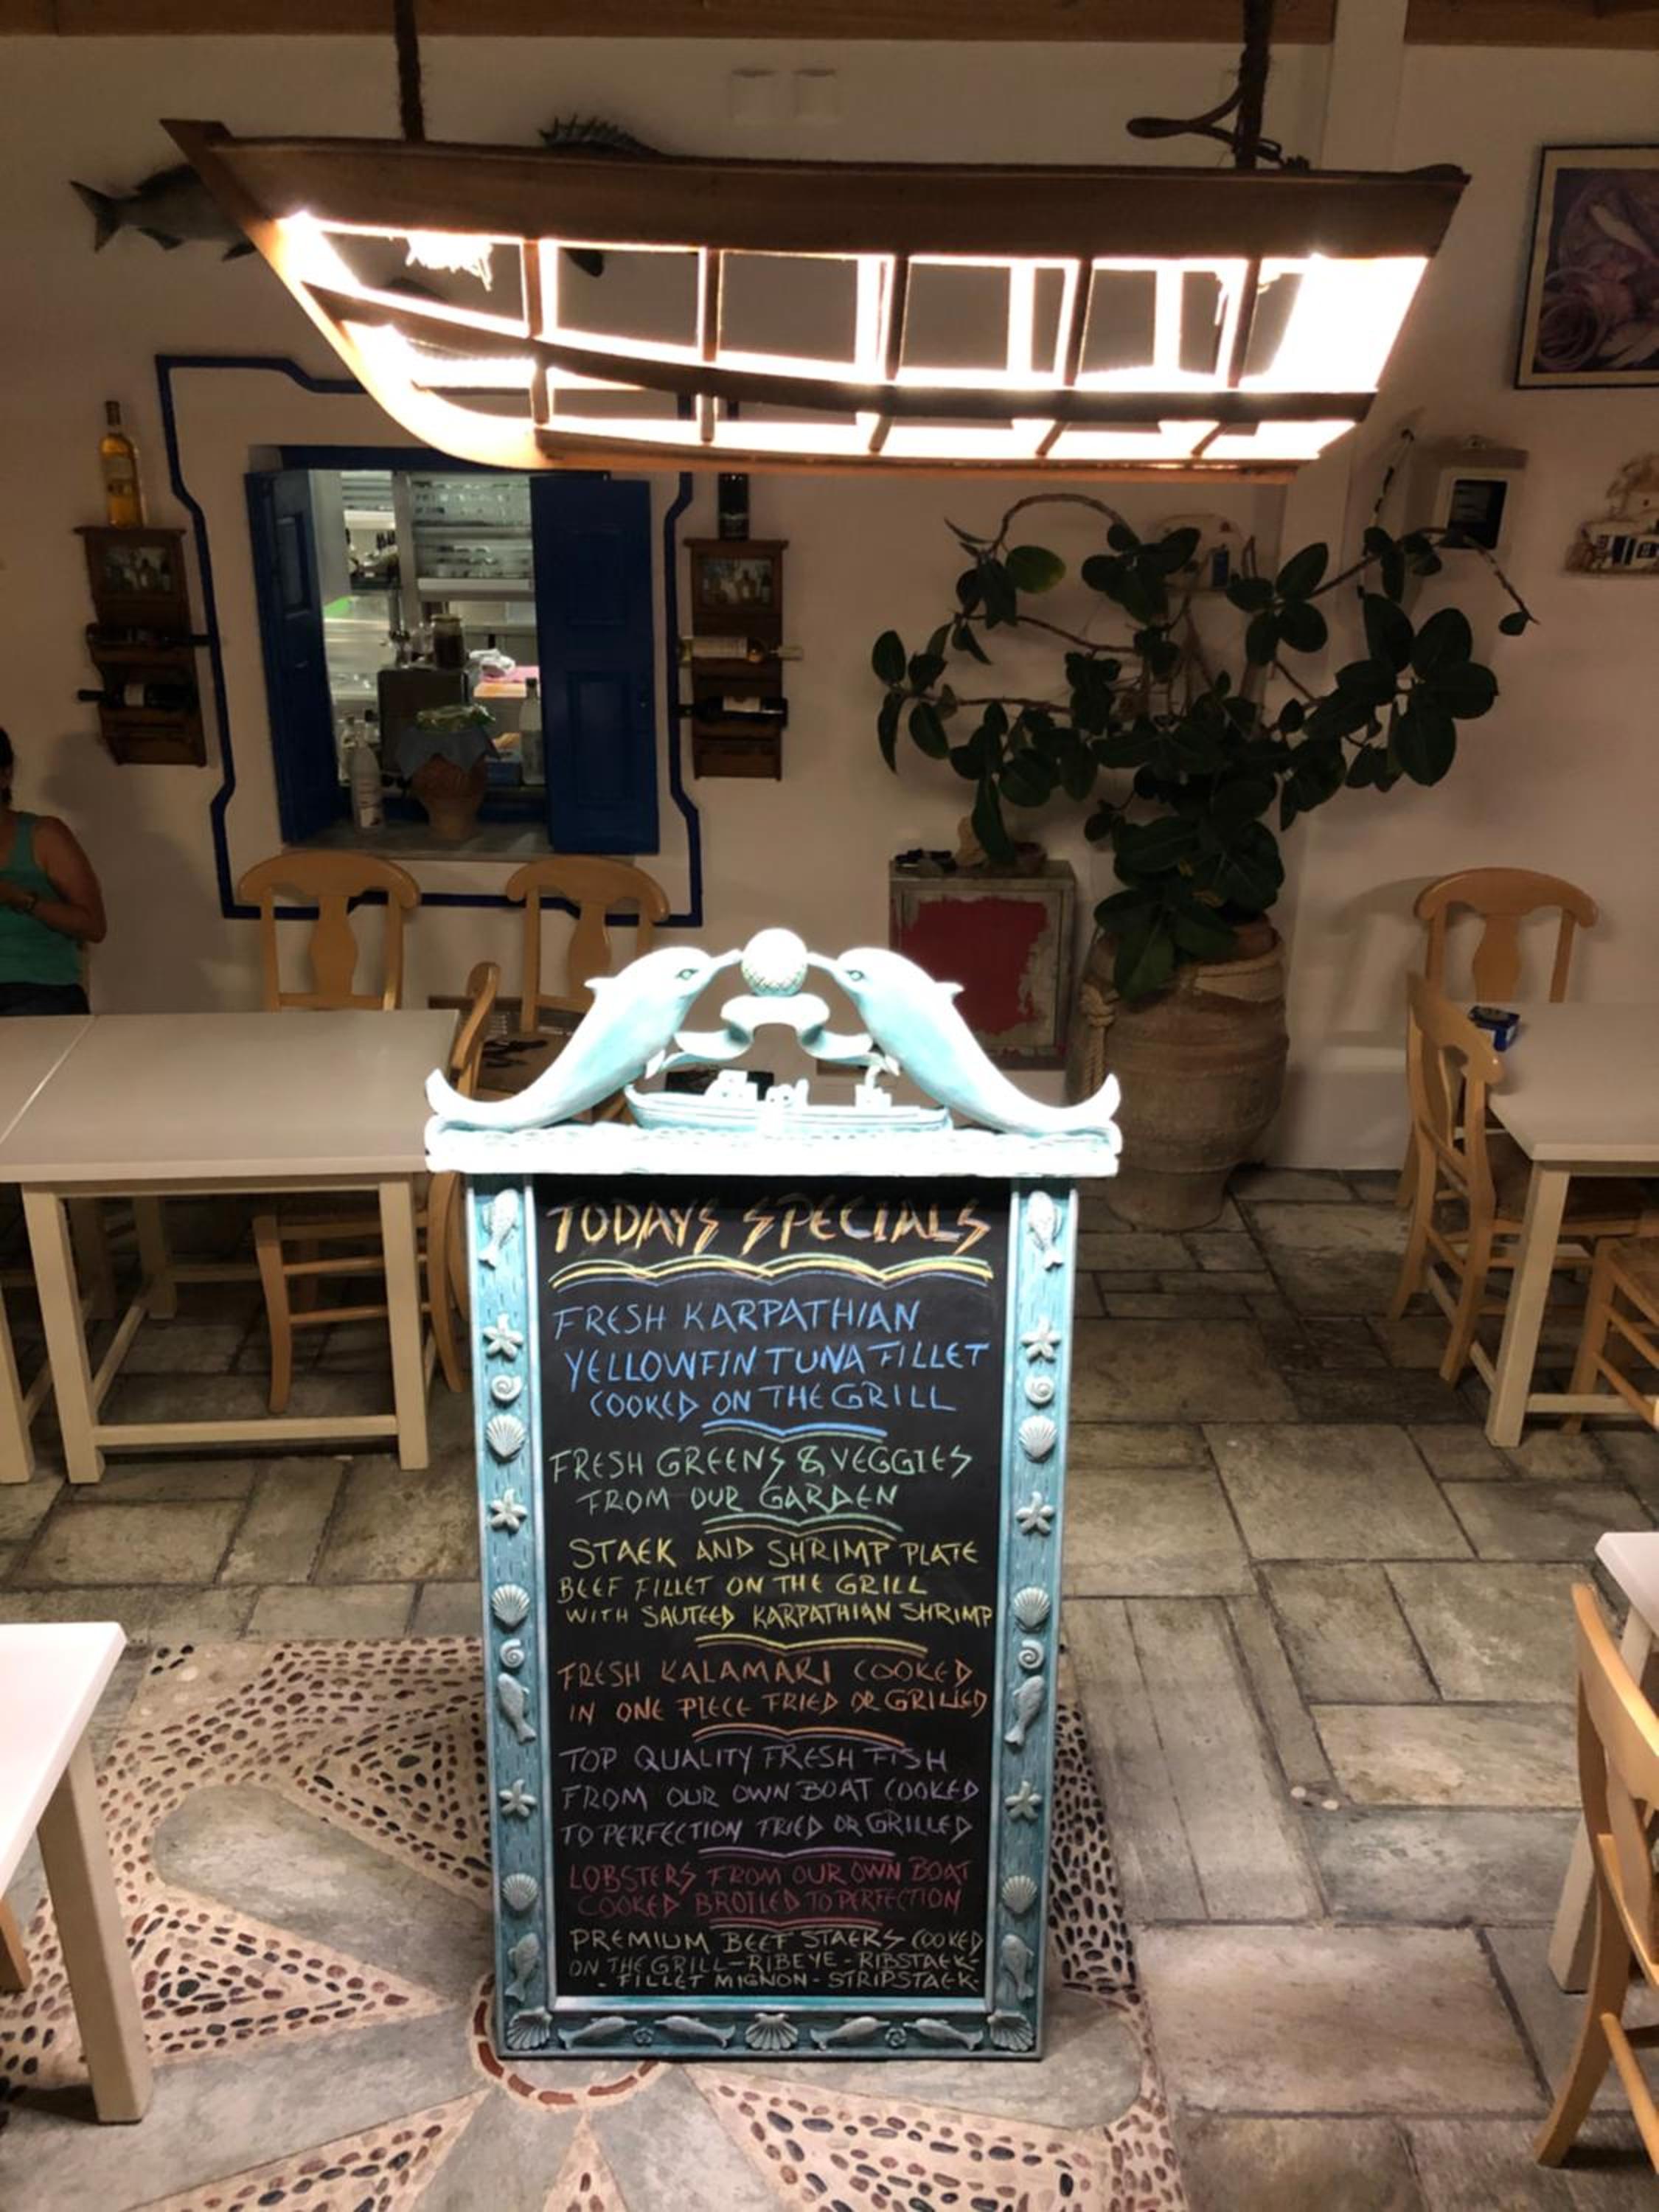 TODAYS SPECIALS
FRESH KARPATHIAN
YELLOWFIN TUNA FILLET
COOKED ON THE GRILL
FRESH GREENS & VEGGIES
FROM OUR GARDEN
STAEK AND SHRIMP PLATE
BEEF FILLET ON THE GRILL
WITH SAUTEED KARPATHIAN SHRIMP
FRESH KALAMARI COOKED
IN ONE PIECE FRIED OR GRILLED
TOP QUALITY FRESH FISH
FROM OUR OWN BOAT COOKED
TO PERFECTION FRIED OR GRILLED
LOBSTERS FROM OUR OWN BOAT
COOKED BROILED TO PERFECTION
PREMIUM BEEF STAEKS COOKED
ON THE GRILL-RIBEYE-RIBSTAEK-
- FILLET MIGNON - STRIPSTAEK-